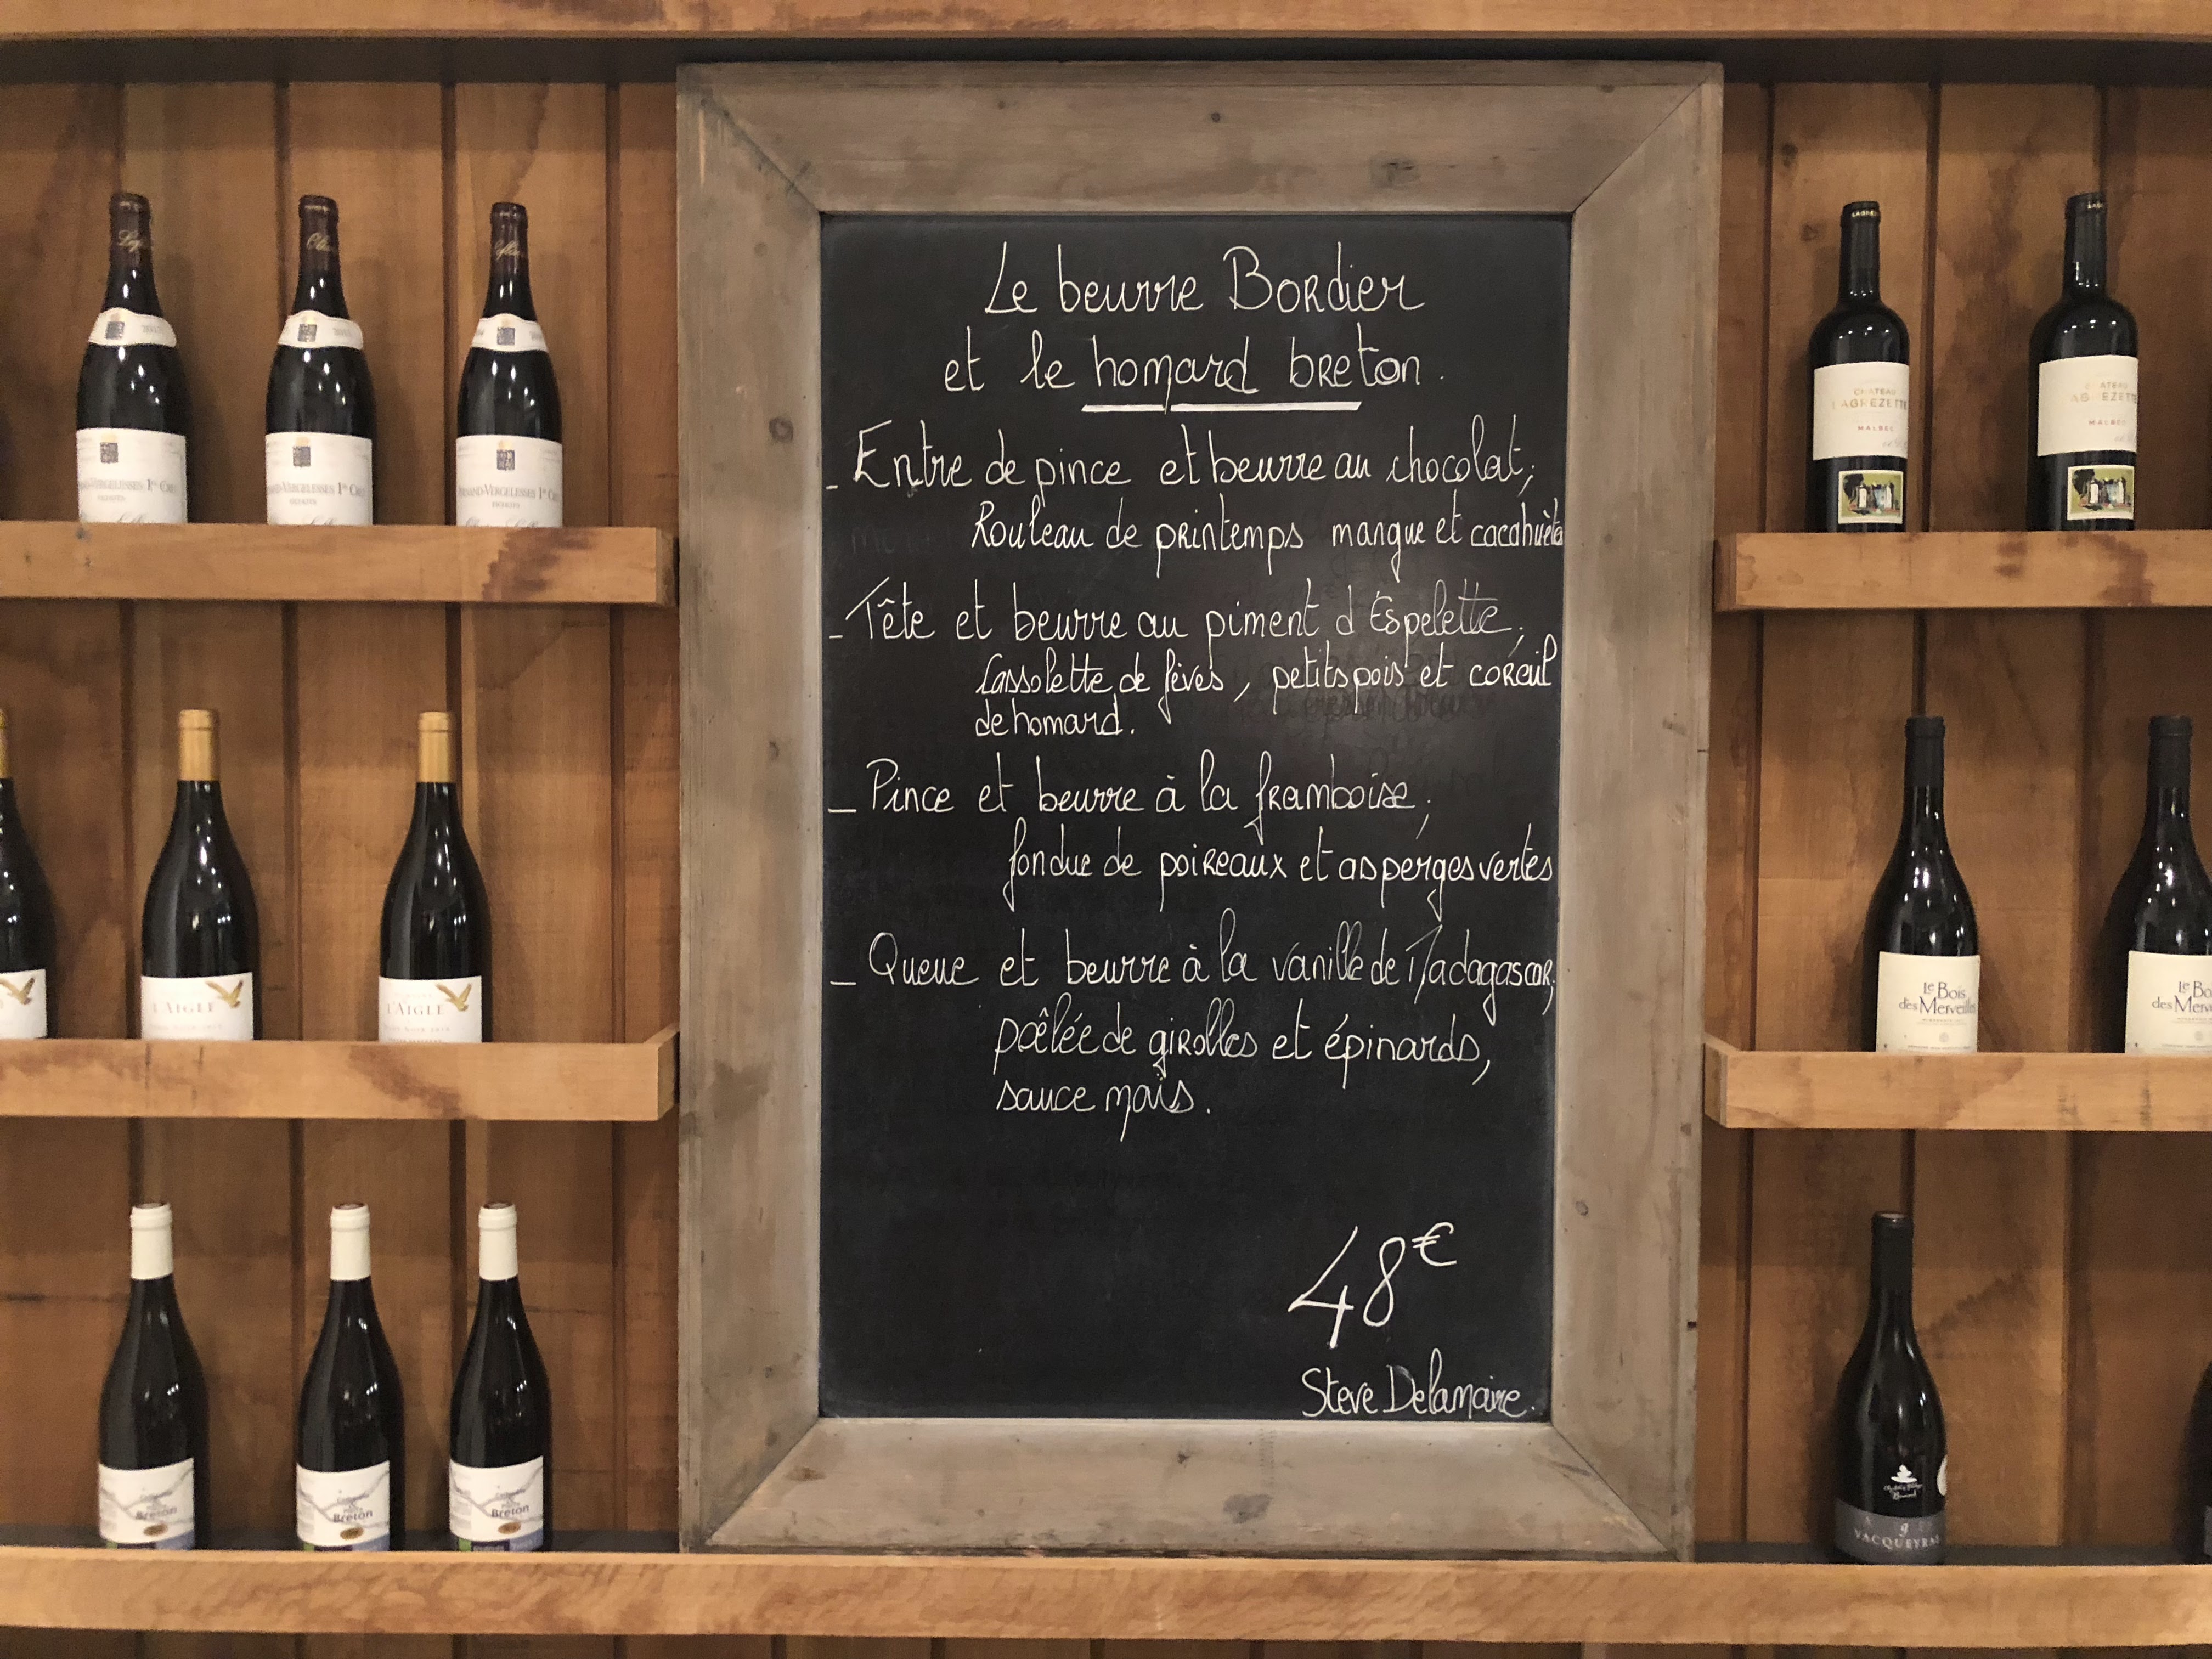 Le beurre Bordier
et le homard breton.
_ Entre de pince et beurre au chocolat,
Rouleau de printemps mangue et cacahuète
_ Tête et beurre au piment d'Espelette,
Cassolette de fèves, petits pois et corail
de homard.
_ Pince et beurre à la framboise,
fondue de poireaux et asperges vertes
_ Queue et beurre à la vanille de Madagascar,
poêlée de girolles et épinards,
sauce maïs.
48€
Steve Delamaire.
VERGELESSES 1er CRU
VERGELESSES 1er CRU
VERGELESSES 1er CRU
L'AIGLE
L'AIGLE
Breton
Breton
Breton
CHATEAU
LAGREZETTE
MALBEC
CHATEAU
LAGREZETTE
MALBEC
Le Bois
des Merveilles
Le Bo
des Merv
VACQUEYRAS